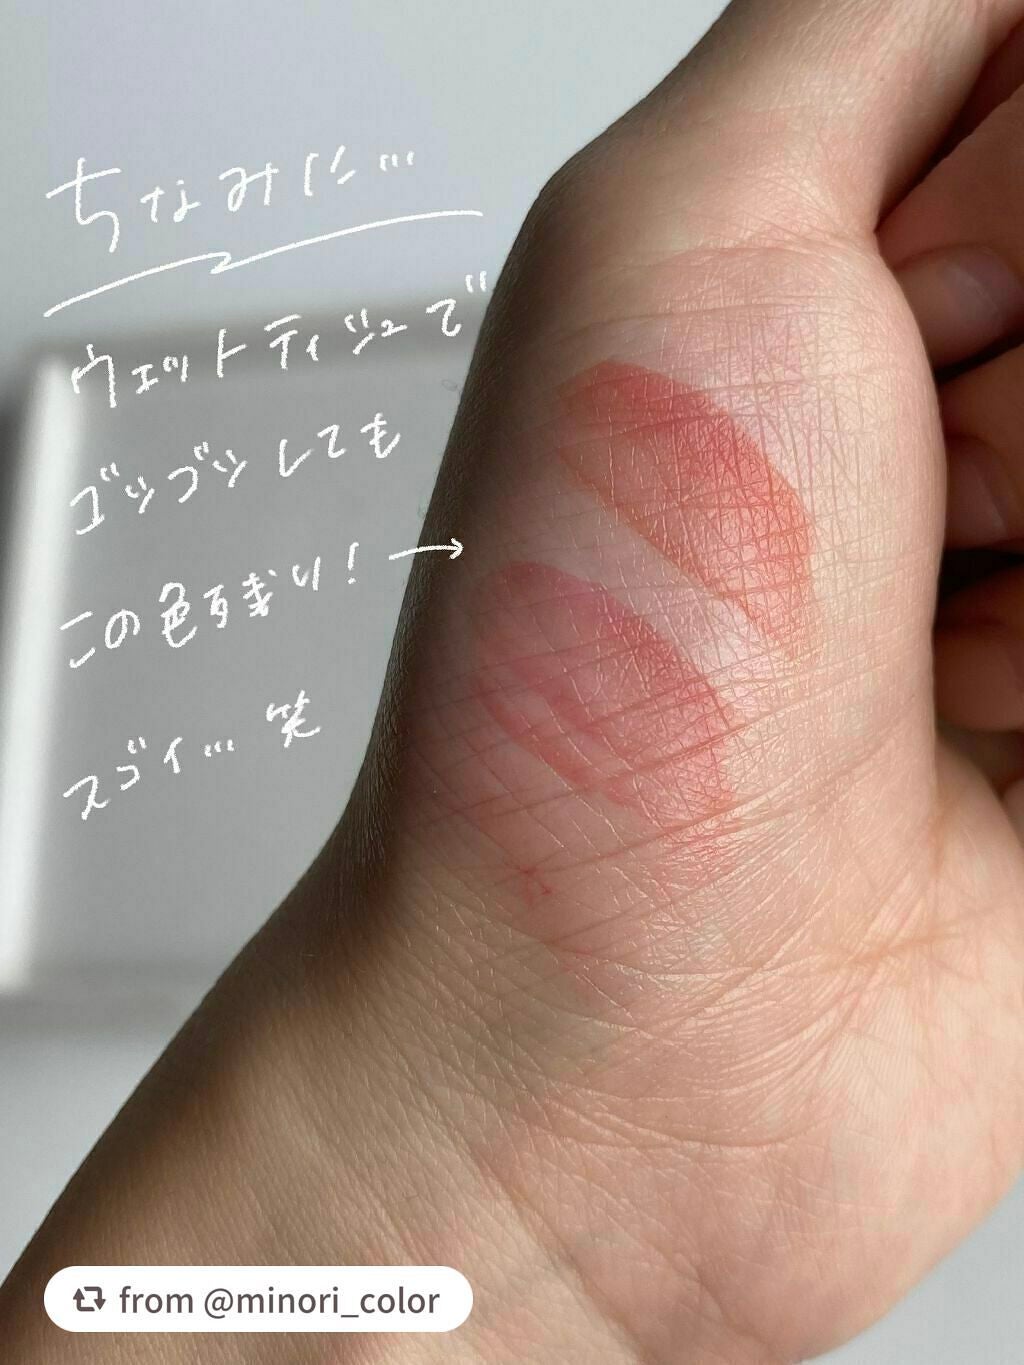 ちなみに…
ウェットティシュで
ゴシゴシしても
この色残り！→
スゴイ… 笑
from @minori_color